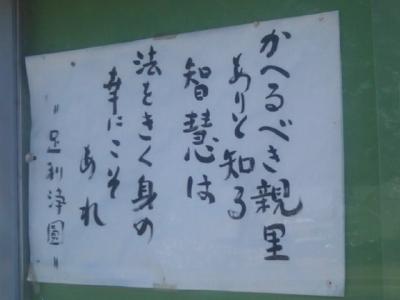 かへるべき親里
ありと知る
智慧は
法をきく身の
幸にこそ
あれ
〃足利浄圓〃